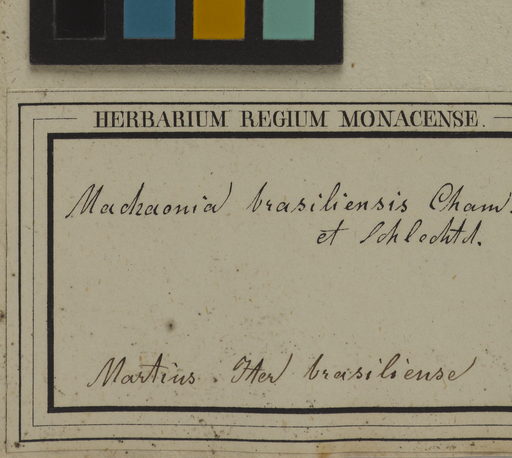 HERBARIUM REGIUM MONACENSE.
Machaonia brasiliensis Cham.
et Schlechtd.
Martius. Iter brasiliense